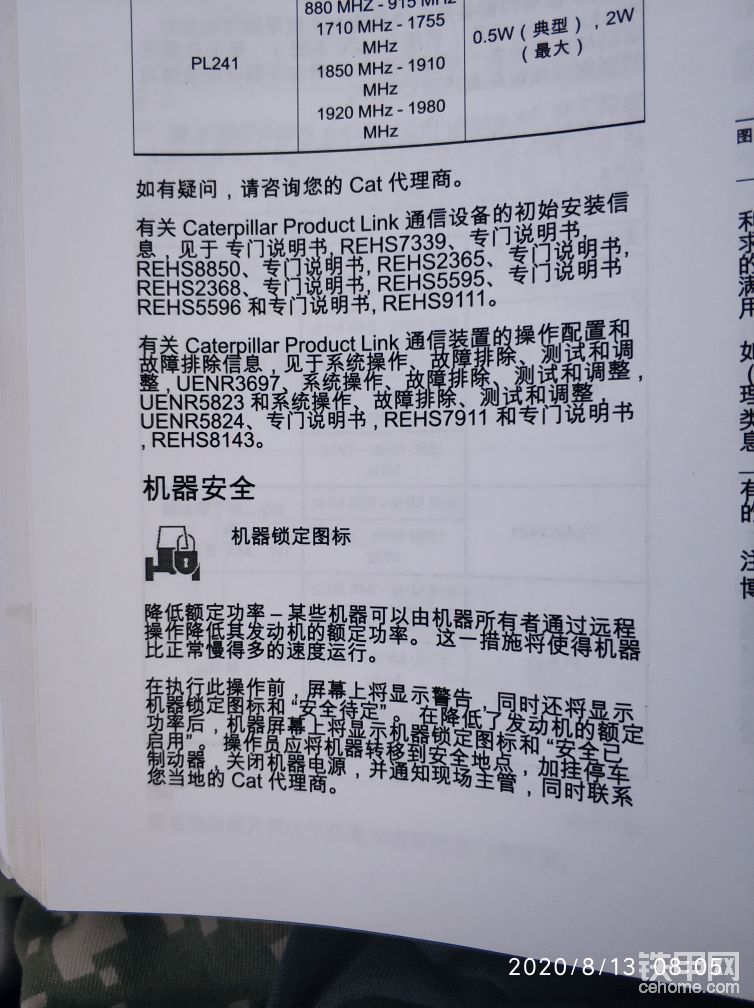 880 MHZ - 915 MHz
1710 MHz - 1755
MHz
PL241
1850 MHz - 1910
MHz
1920 MHz - 1980
MHz
0.5W（典型），2W
（最大）
如有疑问，请咨询您的 Cat 代理商。
有关 Caterpillar Product Link 通信设备的初始安装信
息，见于 专门说明书, REHS7339、专门说明书,
REHS8850、专门说明书, REHS2365、专门说明书,
REHS2368、专门说明书, REHS5595、专门说明书
REHS5596 和专门说明书, REHS9111。
有关 Caterpillar Product Link 通信装置的操作配置和
故障排除信息，见于系统操作、故障排除、测试和调
整 , UENR3697、系统操作、故障排除、测试和调整 ,
UENR5823 和系统操作、故障排除、测试和调整 ,
UENR5824、专门说明书 , REHS7911 和专门说明书
, REHS8143。
机器安全
机器锁定图标
降低额定功率 – 某些机器可以由机器所有者通过远程
操作降低其发动机的额定功率。 这一措施将使得机器
比正常慢得多的速度运行。
在执行此操作前，屏幕上将显示警告，同时还将显示
机器锁定图标和 “安全待定” 。 在降低了发动机的额定
功率后，机器屏幕上将显示机器锁定图标和 “安全已
启用”。 操作员应将机器转移到安全地点，加挂停车
制动器，关闭机器电源，并通知现场主管，同时联系
您当地的 Cat 代理商。
图
利
求
的
满
用
如
（
理
类
息
有
的
注
博
2020/8/13 08:05
铁甲网
cehome.com